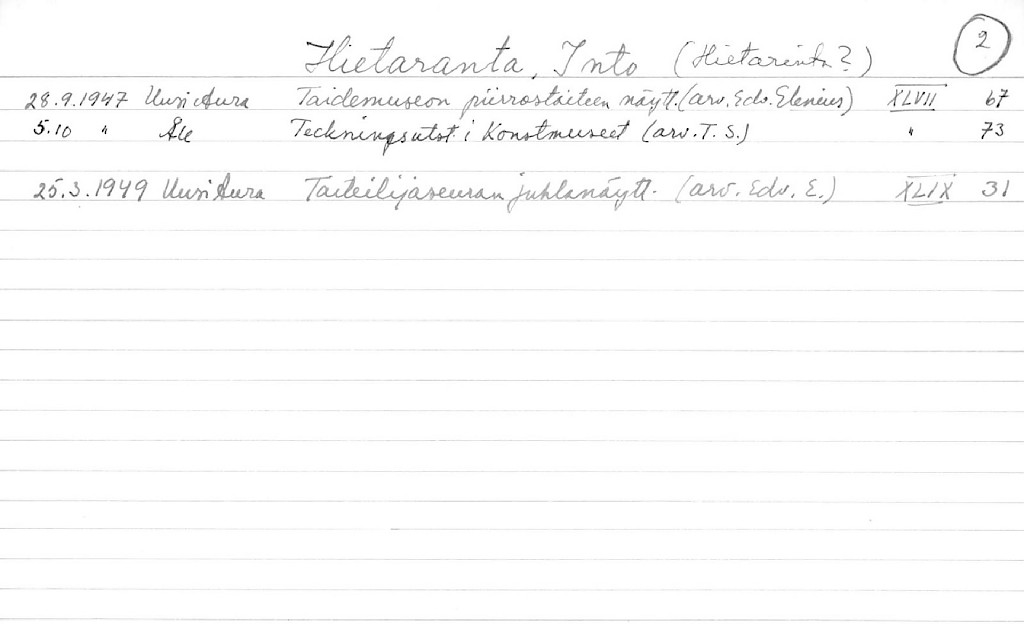 2
Hietaranta, Into (Hietarinta?)
28.9.1947 Uusi Aura Taidemuseon piirrostaiteen näytt. (arv. Edv. Elenius) XLVII 67
5.10 " ÅU Teckningsutst. i Konstmuseet (arv. T. S.) " 73
25.3.1949 Uusi Aura Taiteilijaseuran juhlanäytt. (arv. Edv. E.) XLIX 31